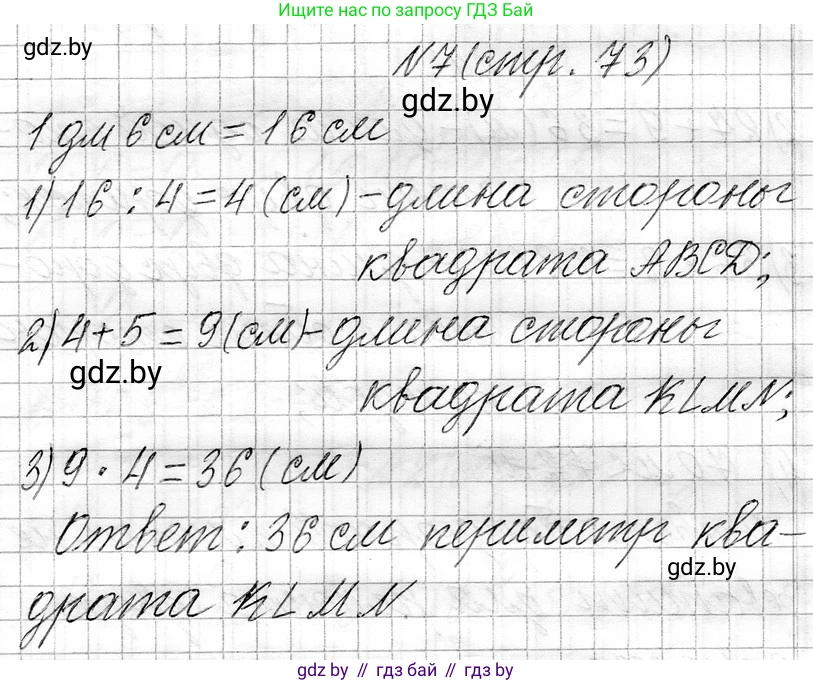 Ищите нас по запросу ГДЗ Бай
gdz.by
N7 (стр. 73)
gdz.by
1 дм 6 см = 16 см
1) 16 : 4 = 4 (см) - длина стороны
квадрата ABCD;
2) 4 + 5 = 9 (см) - длина стороны
gdz.by
квадрата KLMN;
3) 9 · 4 = 36 (см)
Ответ: 36 см периметр ква-
gdz.by
драта KLMN.
gdz.by // гдз бай // gdz.by